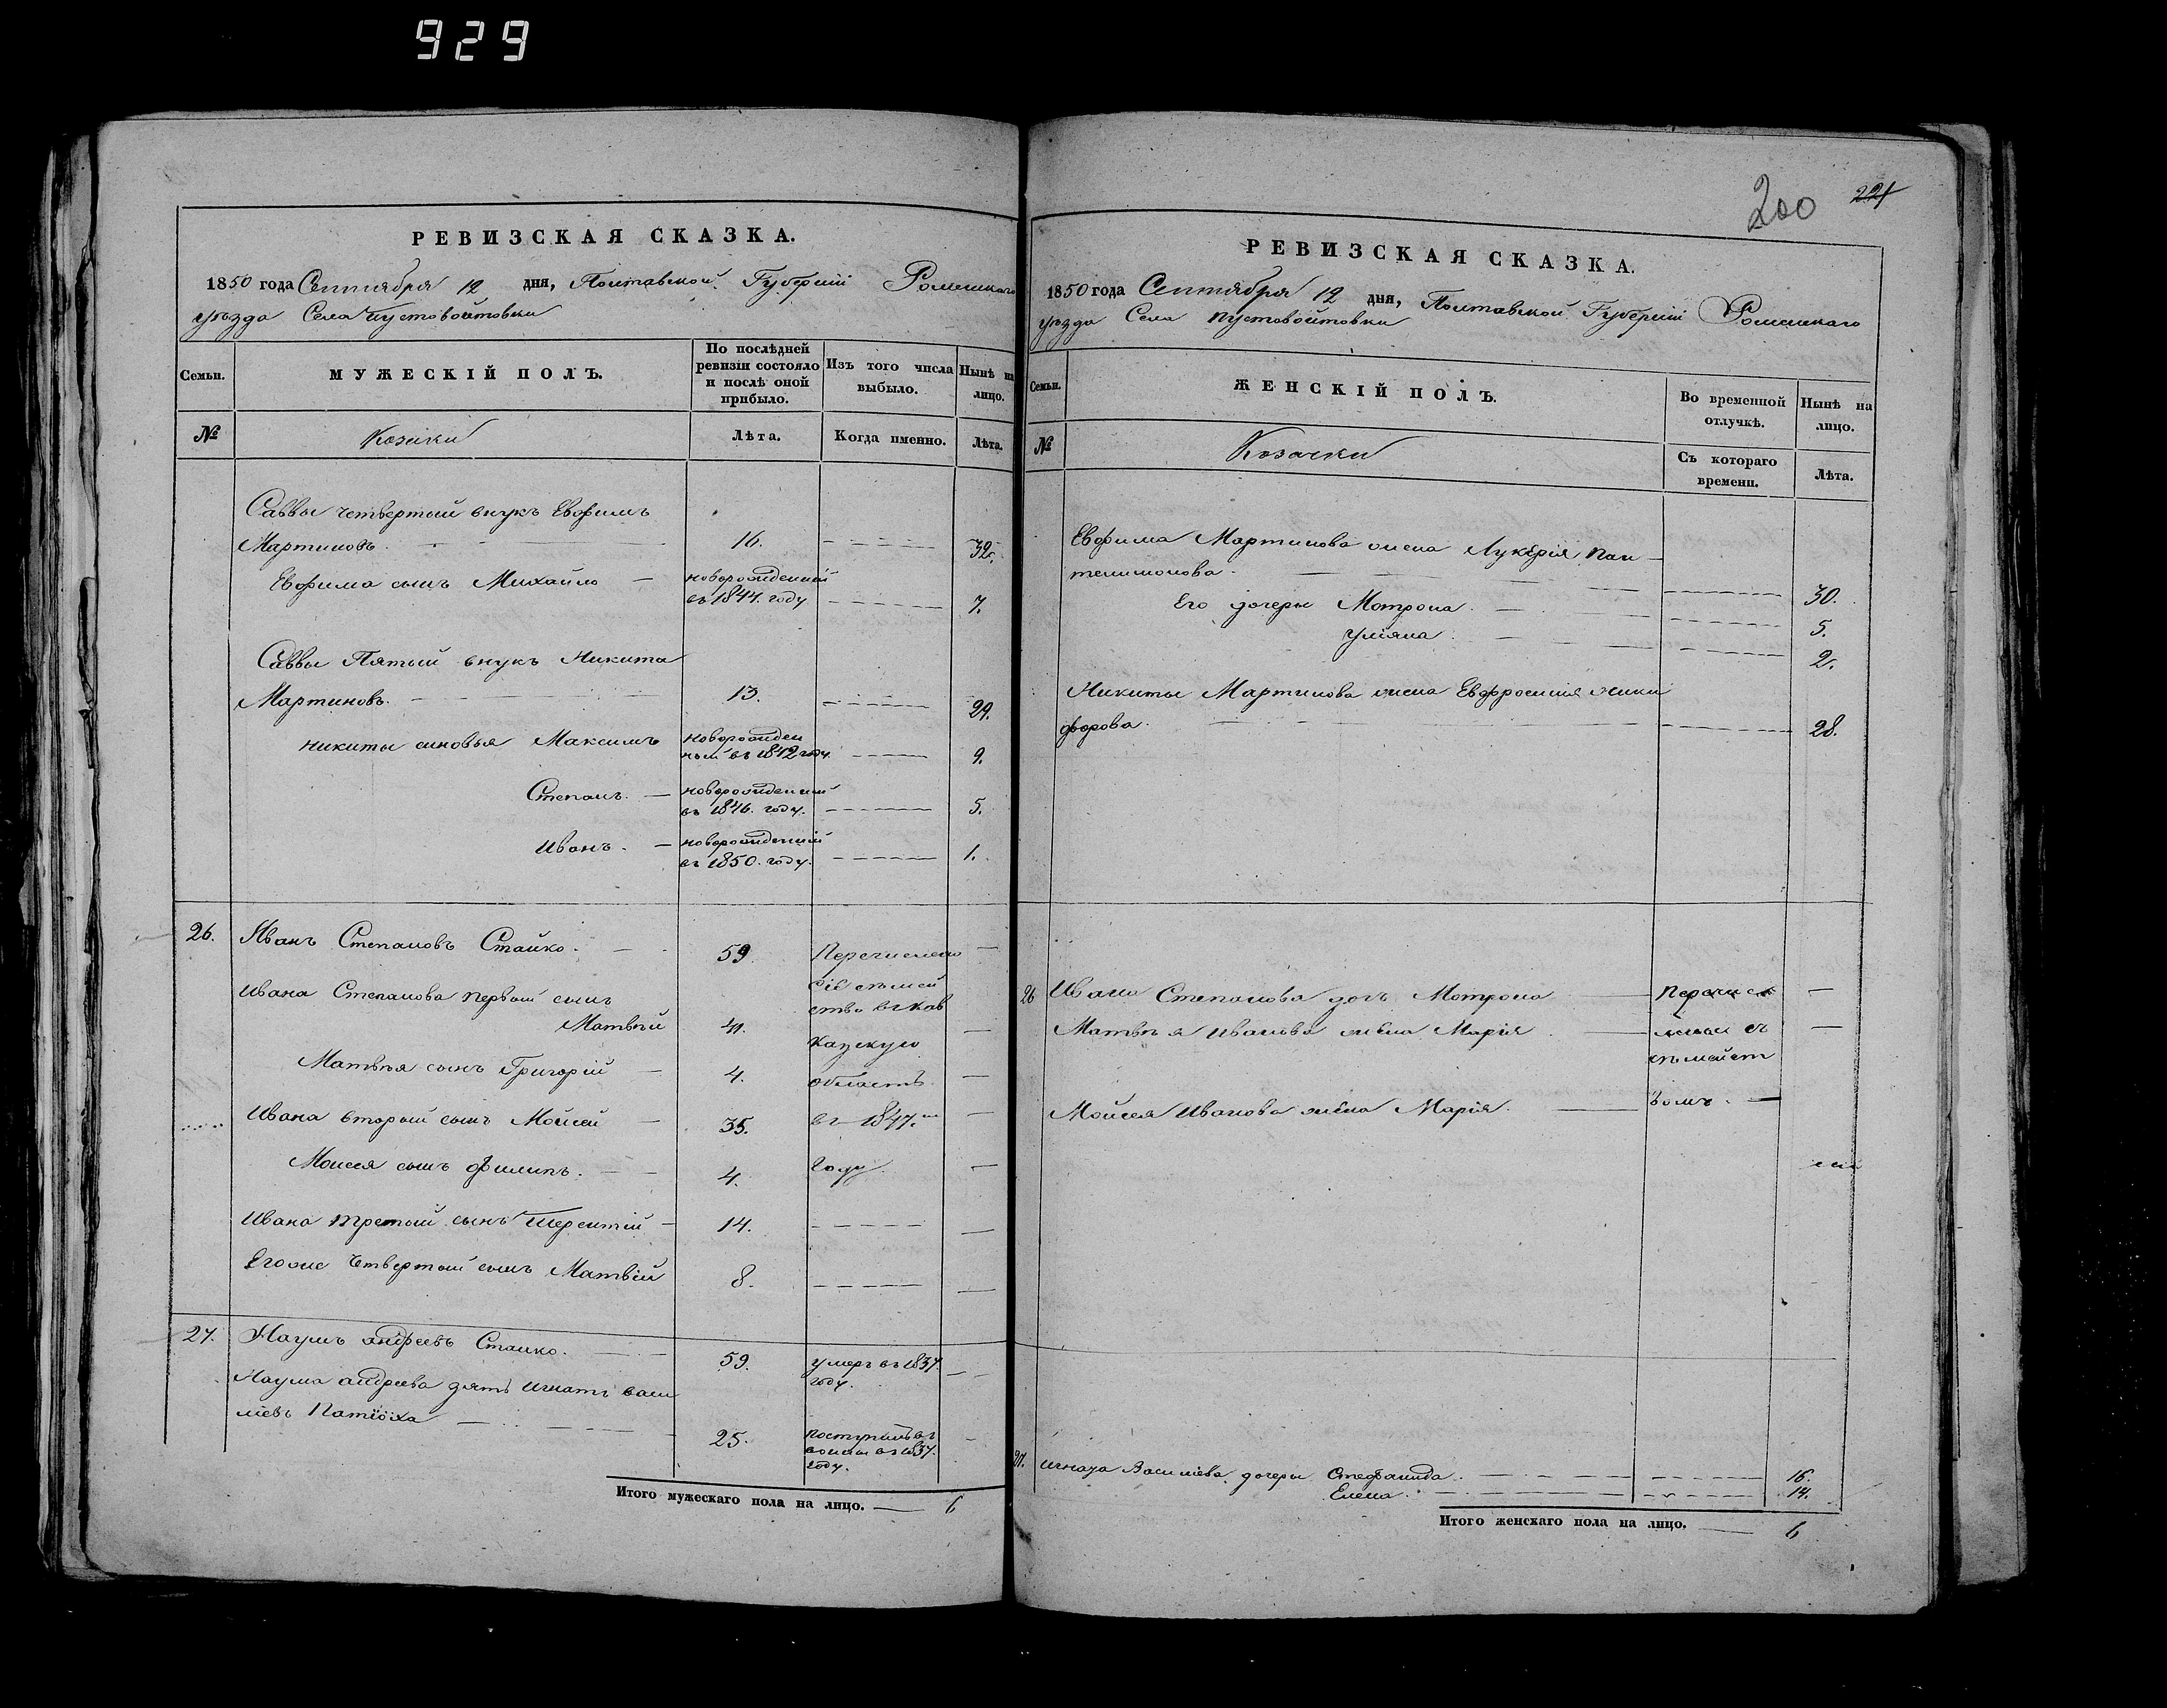 929
РЕВИЗСКАЯ СКАЗКА.
1850 года Сентября 12 дня, Полтавской Губернiи Роменскаго
уѣзда Села Пустовойтовки
Семьи.
МУЖЕСКІЙ ПОЛЪ.
По послѣдней ревизіи состояло и послѣ оной прибыло.
Изъ того числа выбыло.
Нынѣ на лицо.
№
Козаки
Лѣта.
Когда именно.
Лѣта.
Саввы четвертый внукъ Евфимъ
Мартиновъ. 16. 32.
Евфима сынъ Михайло новорожденный
въ 1844. году 7.
Саввы Пятый внукъ Никита
Мартиновъ. 13. 29.
Никиты синовья Максимъ новорожден
ный въ 1842 году. 9.
Степанъ. новорожденный
въ 1846. году. 5.
Иванъ. новорожденный
въ 1850. году. 1.
26. Иванъ Степановъ Стайко. 59 Перечислено
Ивана Степанова первый сынъ
Матвѣй 41.
Матвѣя сынъ Григорій 4. область
Ивана вторый сынъ Мойсей 35. въ 1847.
Моисея сынъ Филипъ. 4. году.
Ивана третый сынъ Терентій 14.
Егоже Четвертый сынъ Матвій 8.
27. Наумъ Андреевъ Стайко. 59. умеръ въ 1837.
году.
Наума Андреева зять Игнатъ Васи
ліевъ 25. поступилъ въ
въ 1837.
году.
Итого мужескаго пола на лицо. 6
200 221
РЕВИЗСКАЯ СКАЗКА.
1850 года Сентября 12 дня, Полтавской Губерніи Роменскаго
уѣзда Села Пустовойтовки
Семьи.
ЖЕНСКІЙ ПОЛЪ.
Во временной отлучкѣ.
Нынѣ на лицо.
№
Козачки
Съ котораго времени.
Лѣта.
Евфима Мартинова жена Лукерія Пан
телимонова 30.
Его дочери Мотрона. 5.
Уліяна. 2.
Никиты Мартинова жена Евфросинія Ники
форова. 28.
26 Ивана Степанова дочь Мотрона
Матвѣя Иванова жена Марія
Мойсея Иванова жена Марія.
27. Игната Василіева дочери Стефанида. 16.
Елена. 14.
Итого женскаго пола на лицо. 6